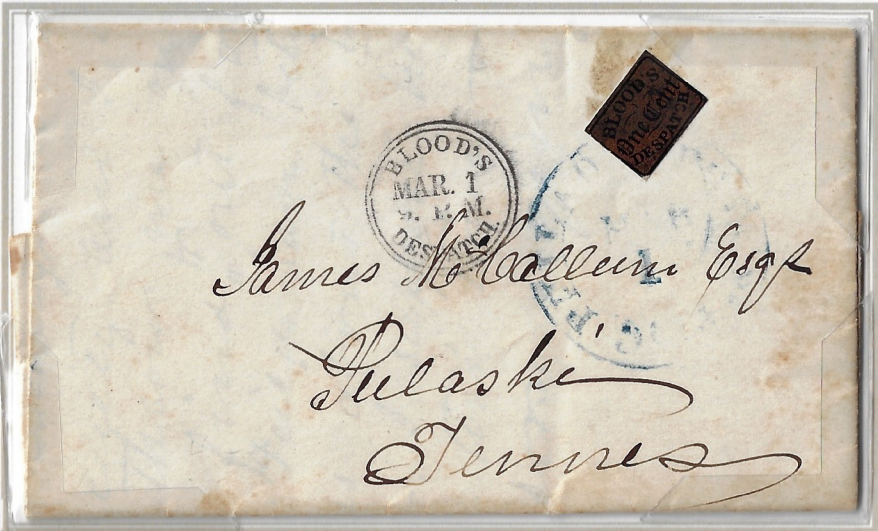 BLOOD'S
One Cent
DESPATCH
BLOOD'S
MAR. 1
P. M.
DESPATCH
James McCallum Esqr
Pulaski
Tennes